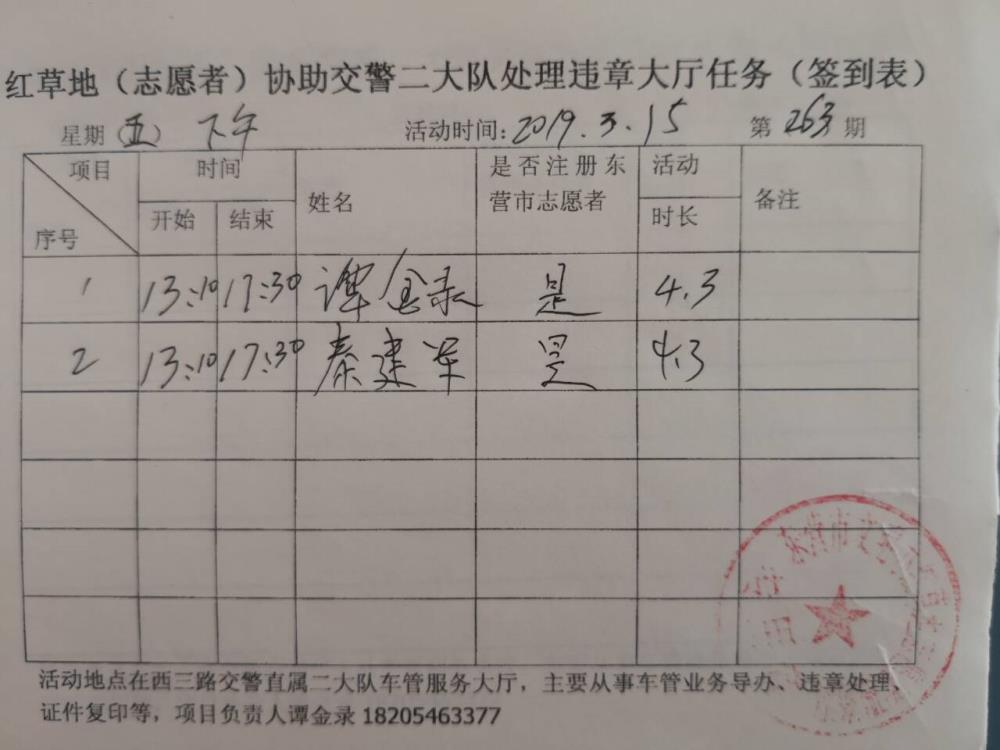 红草地（志愿者）协助交警二大队处理违章大厅任务（签到表）
星期（五） 下午 活动时间：2019.3.15 第 263 期
项目 时间 姓名 是否注册东营市志愿者 活动时长 备注
序号 开始 结束
1 13:10 17:30 谭金录 是 4.3
2 13:10 17:30 秦建军 是 4.3
活动地点在西三路交警直属二大队车管服务大厅，主要从事车管业务导办、违章处理、
证件复印等，项目负责人谭金录 18205463377